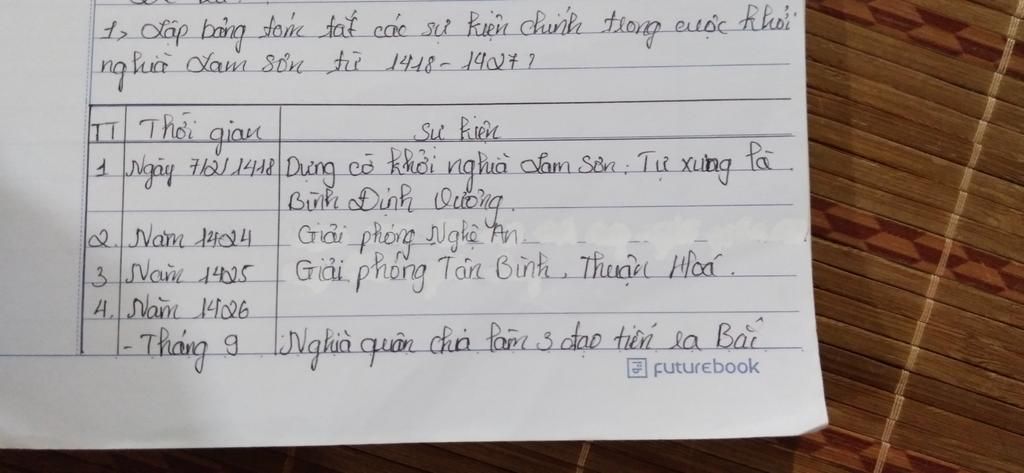 1, Lập bảng tóm tắt các sự kiện chính trong cuộc khởi
nghĩa Lam Sơn từ 1418 - 1427?
TT Thời gian Sự kiện
1 Ngày 7/2/1418 Dựng cờ khởi nghĩa Lam Sơn: Tự xưng là
Bình Định Vương.
2. Năm 1424 Giải phóng Nghệ An.
3 Năm 1425 Giải phóng Tân Bình, Thuận Hoá.
4. Năm 1426
- Tháng 9 Nghĩa quân chia làm 3 đạo tiến ra Bắc
FUTUREBOOK